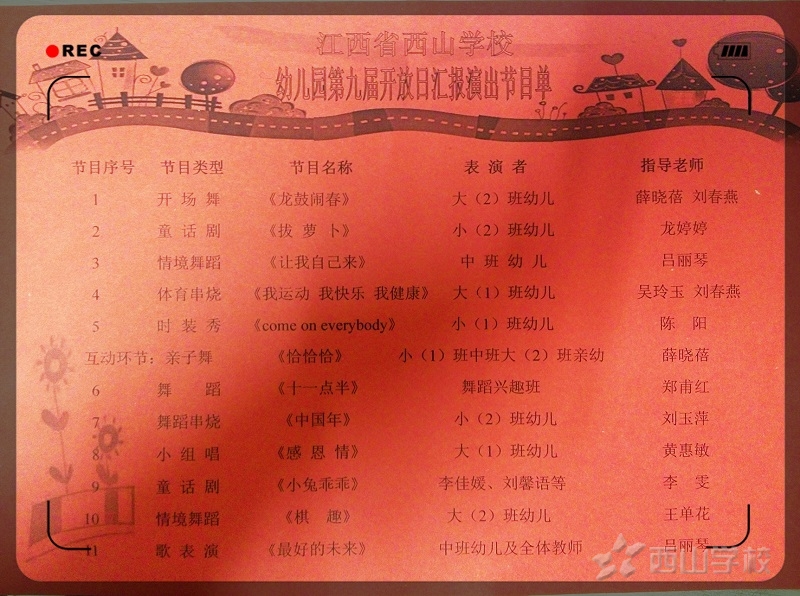 REC
江西省西山学校
幼儿园第九届开放日汇报演出节目单
节目序号 节目类型 节目名称 表 演 者 指导老师
1 开 场 舞 《龙鼓闹春》 大（2）班幼儿 薛晓蓓 刘春燕
2 童 话 剧 《拔 萝 卜》 小（2）班幼儿 龙婷婷
3 情境舞蹈 《让我自己来》 中 班 幼 儿 吕丽琴
4 体育串烧 《我运动 我快乐 我健康》 大（1）班幼儿 吴玲玉 刘春燕
5 时 装 秀 《come on everybody》 小（1）班幼儿 陈 阳
互动环节：亲子舞 《恰恰恰》 小（1）班中班大（2）班亲幼 薛晓蓓
6 舞 蹈 《十一点半》 舞蹈兴趣班 郑甫红
7 舞蹈串烧 《中国年》 小（2）班幼儿 刘玉萍
8 小 组 唱 《感 恩 情》 大（1）班幼儿 黄惠敏
9 童 话 剧 《小兔乖乖》 李佳媛、刘馨语等 李 雯
10 情境舞蹈 《棋 趣》 大（2）班幼儿 王单花
11 歌 表 演 《最好的未来》 中班幼儿及全体教师 吕丽琴
西山学校